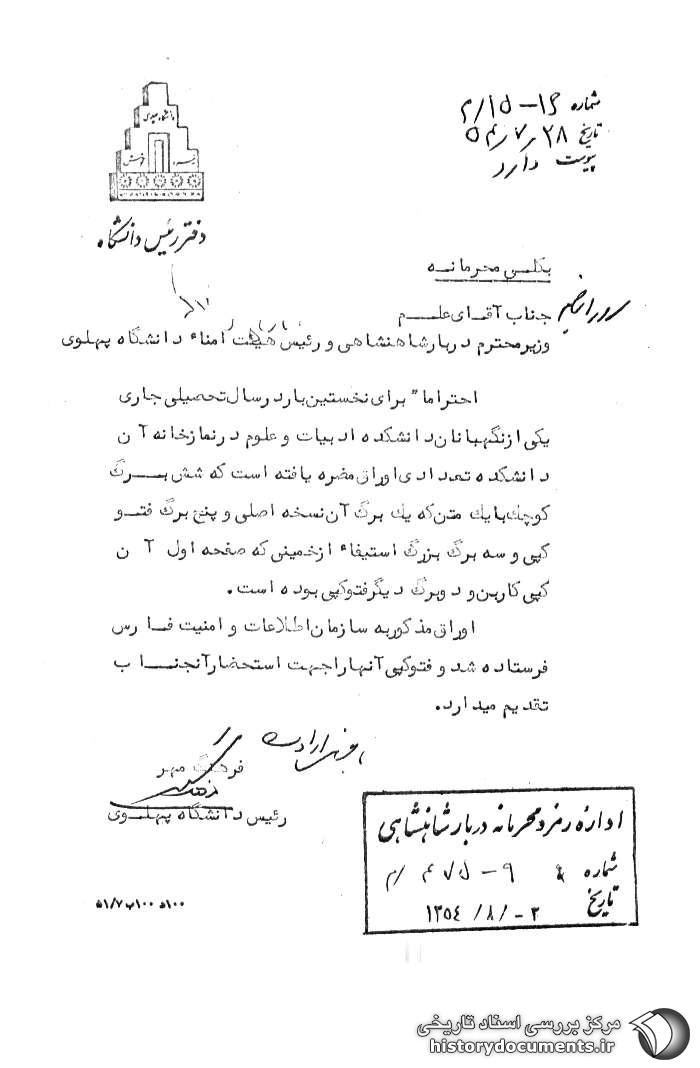 شماره ۱۶-۱۵/م
تاریخ ۲۸/۷/۵۴
پیوست دارد
دانشگاه پهلوی
دفتر رئیس دانشگاه
بکلی محرمانه
جناب آقای علم
وزیر محترم دربار شاهنشاهی و رئیس هیئت امناء دانشگاه پهلوی
احتراما" برای نخستین بار در سال تحصیلی جاری
یکی از نگهبانان دانشکده ادبیات و علوم در نمازخانه آن
دانشکده تعدادی اوراق مضره یافته است که شش برگ
کوچک با یک متن که یک برگ آن نسخه اصلی و پنج برگ فتو
کپی و سه برگ بزرگ استیفاء از خمینی که صفحه اول آن
کپی کاربن و دو برگ دیگر فتوکپی بوده است.
اوراق مذکور به سازمان اطلاعات و امنیت فارس
فرستاده شد و فتوکپی آنها را جهت استحضار آنجناب
تقدیم میدارد.
فرهنگ مهر
رئیس دانشگاه پهلوی
اداره رمز و محرمانه دربار شاهنشاهی
شماره
تاریخ ۳-/۸/۱۳۵۴
۵۱/۷ ب۱۰۰ ۵۱۰۰
مرکز بررسی اسناد تاریخی
historydocuments.ir